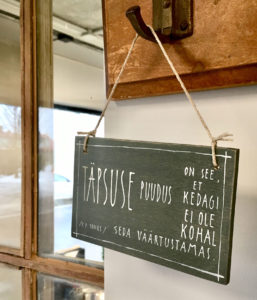 TÄPSUSE PUUDUS
ON SEE
ET
KEDAGI
EI OLE
KOHAL
SEDA VÄÄRTUSTAMAS.